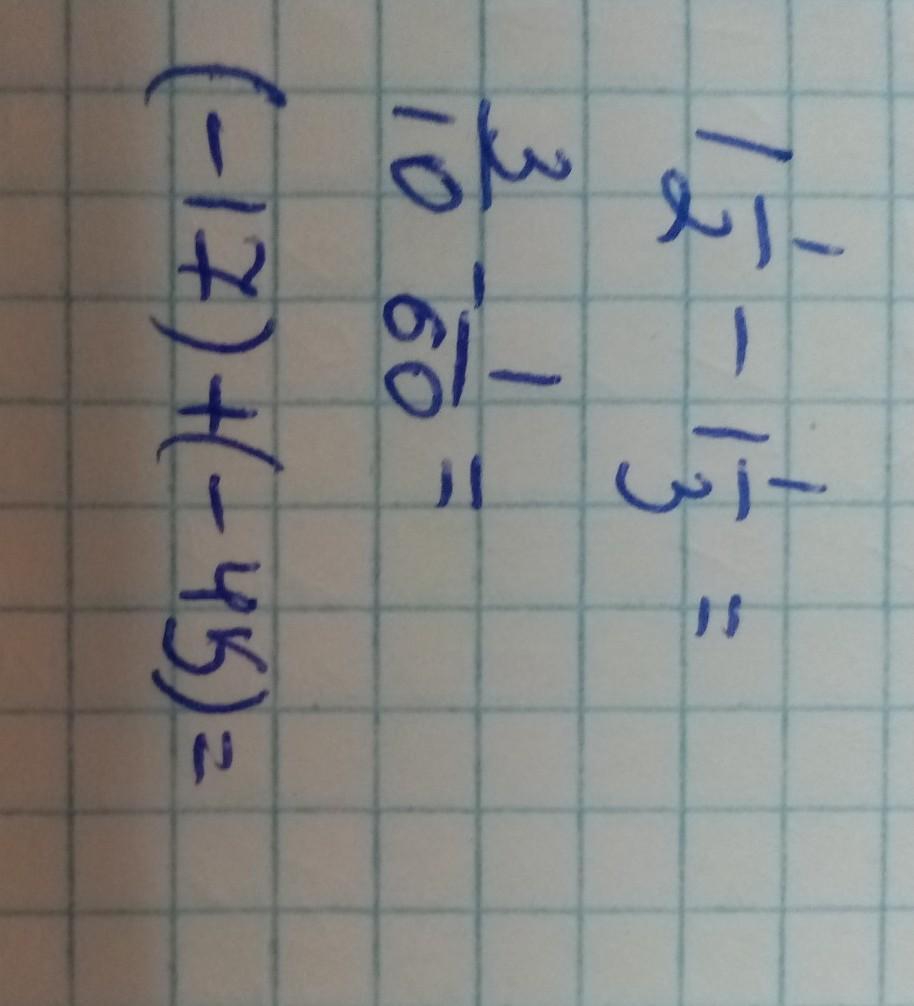 1 1/2 - 1 1/3 =
3/10 - 1/60 =
(-17)+(-45)=